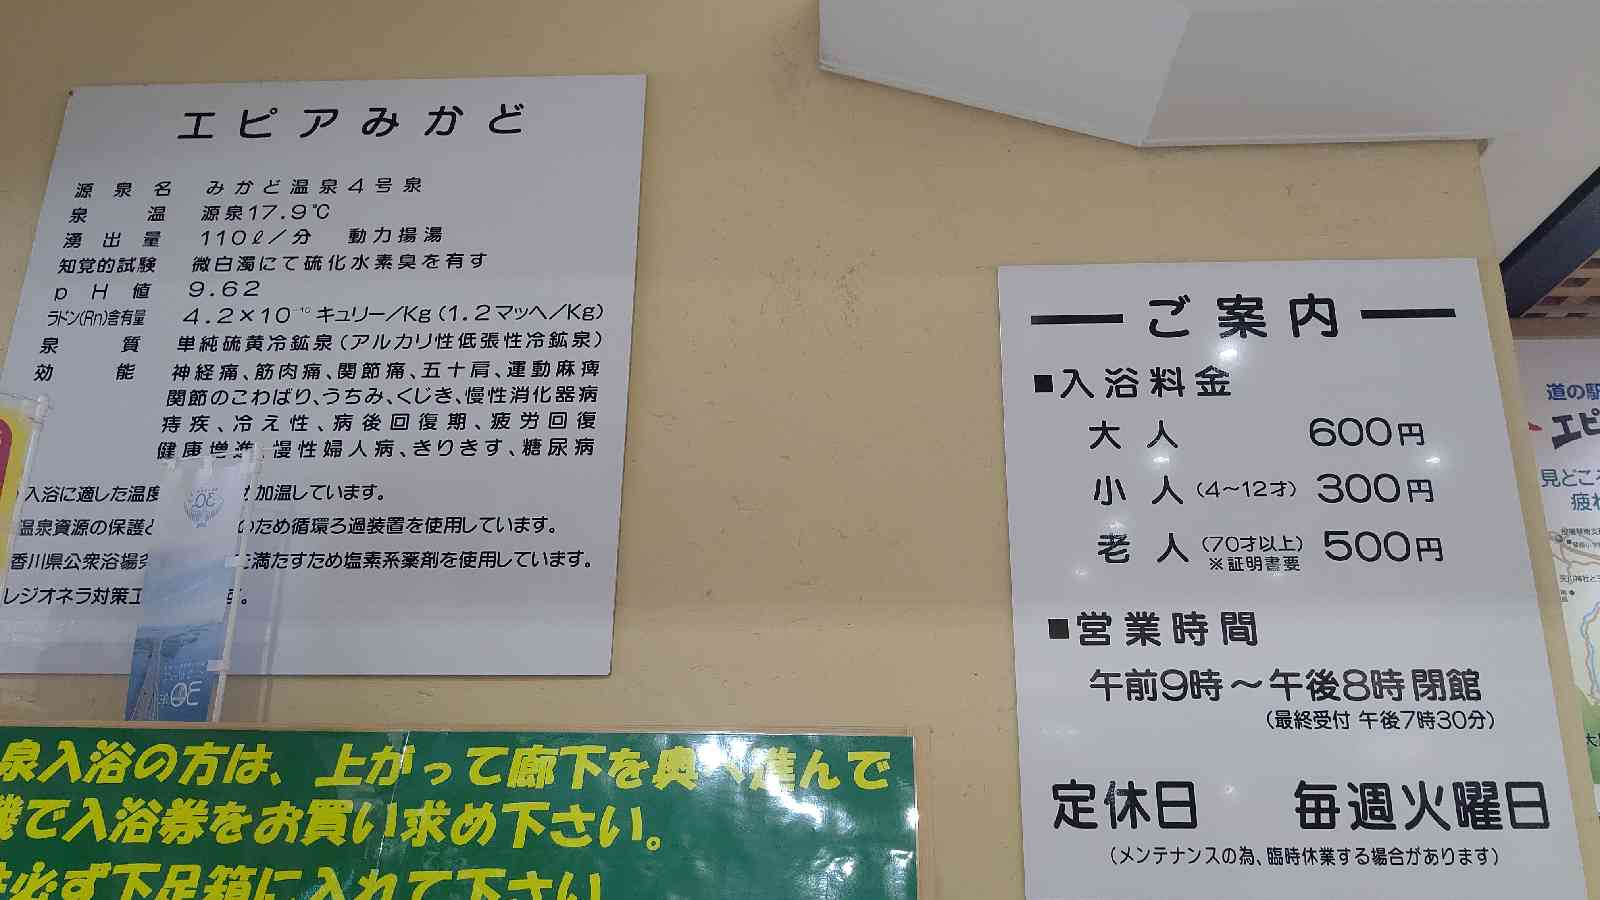 エピアみかど
源泉名 みかど温泉4号泉
泉温 源泉17.9℃
湧出量 110ℓ/分 動力揚湯
知覚的試験 微白濁にて硫化水素臭を有す
pH値 9.62
ラドン(Rn)含有量 4.2×10⁻¹⁰キュリー/Kg(1.2マッヘ/Kg)
泉質 単純硫黄冷鉱泉(アルカリ性低張性冷鉱泉)
効能 神経痛、筋肉痛、関節痛、五十肩、運動麻痺
関節のこわばり、うちみ、くじき、慢性消化器病
痔疾、冷え性、病後回復期、疲労回復
健康増進、慢性婦人病、きりきす、糖尿病
入浴に適した温度 加温しています。
温泉資源の保護と ため循環ろ過装置を使用しています。
香川県公衆浴場 満たすため塩素系薬剤を使用しています。
レジオネラ対策工 す。
泉入浴の方は、上がって廊下を奥へ進んで
機で入浴券をお買い求め下さい。
必ず下足箱に入れて下さい
ご案内
■入浴料金
大人 600円
小人(4~12才) 300円
老人(70才以上) 500円
※証明書要
■営業時間
午前9時~午後8時閉館
(最終受付 午後7時30分)
定休日 毎週火曜日
(メンテナンスの為、臨時休業する場合があります)
道の駅
エピ
見どころ
疲れ